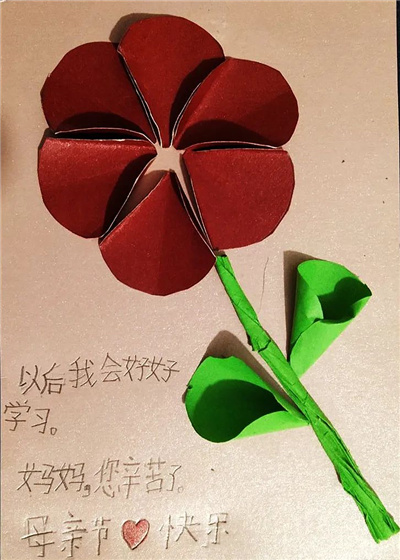 以后我会好好
学习。
妈妈,您辛苦了。
母亲节❤快乐